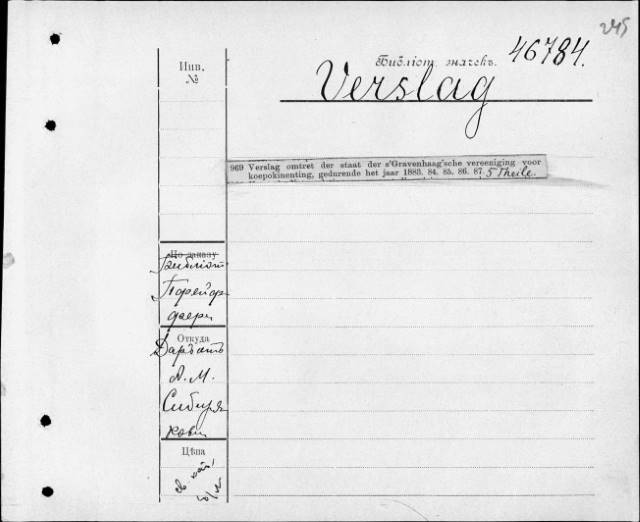 245
46784.
Инв.
№
Библіот. значекъ.
Verslag
969 Verslag omtret der staat der s'Gravenhaag'sche vereeniging voor
koepokinenting, gedurende het jaar 1883. 84. 85. 86. 87. 5 Theile.
По заказу
Библіот
Откуда
А. М.
Сибиря
кова
Цѣна